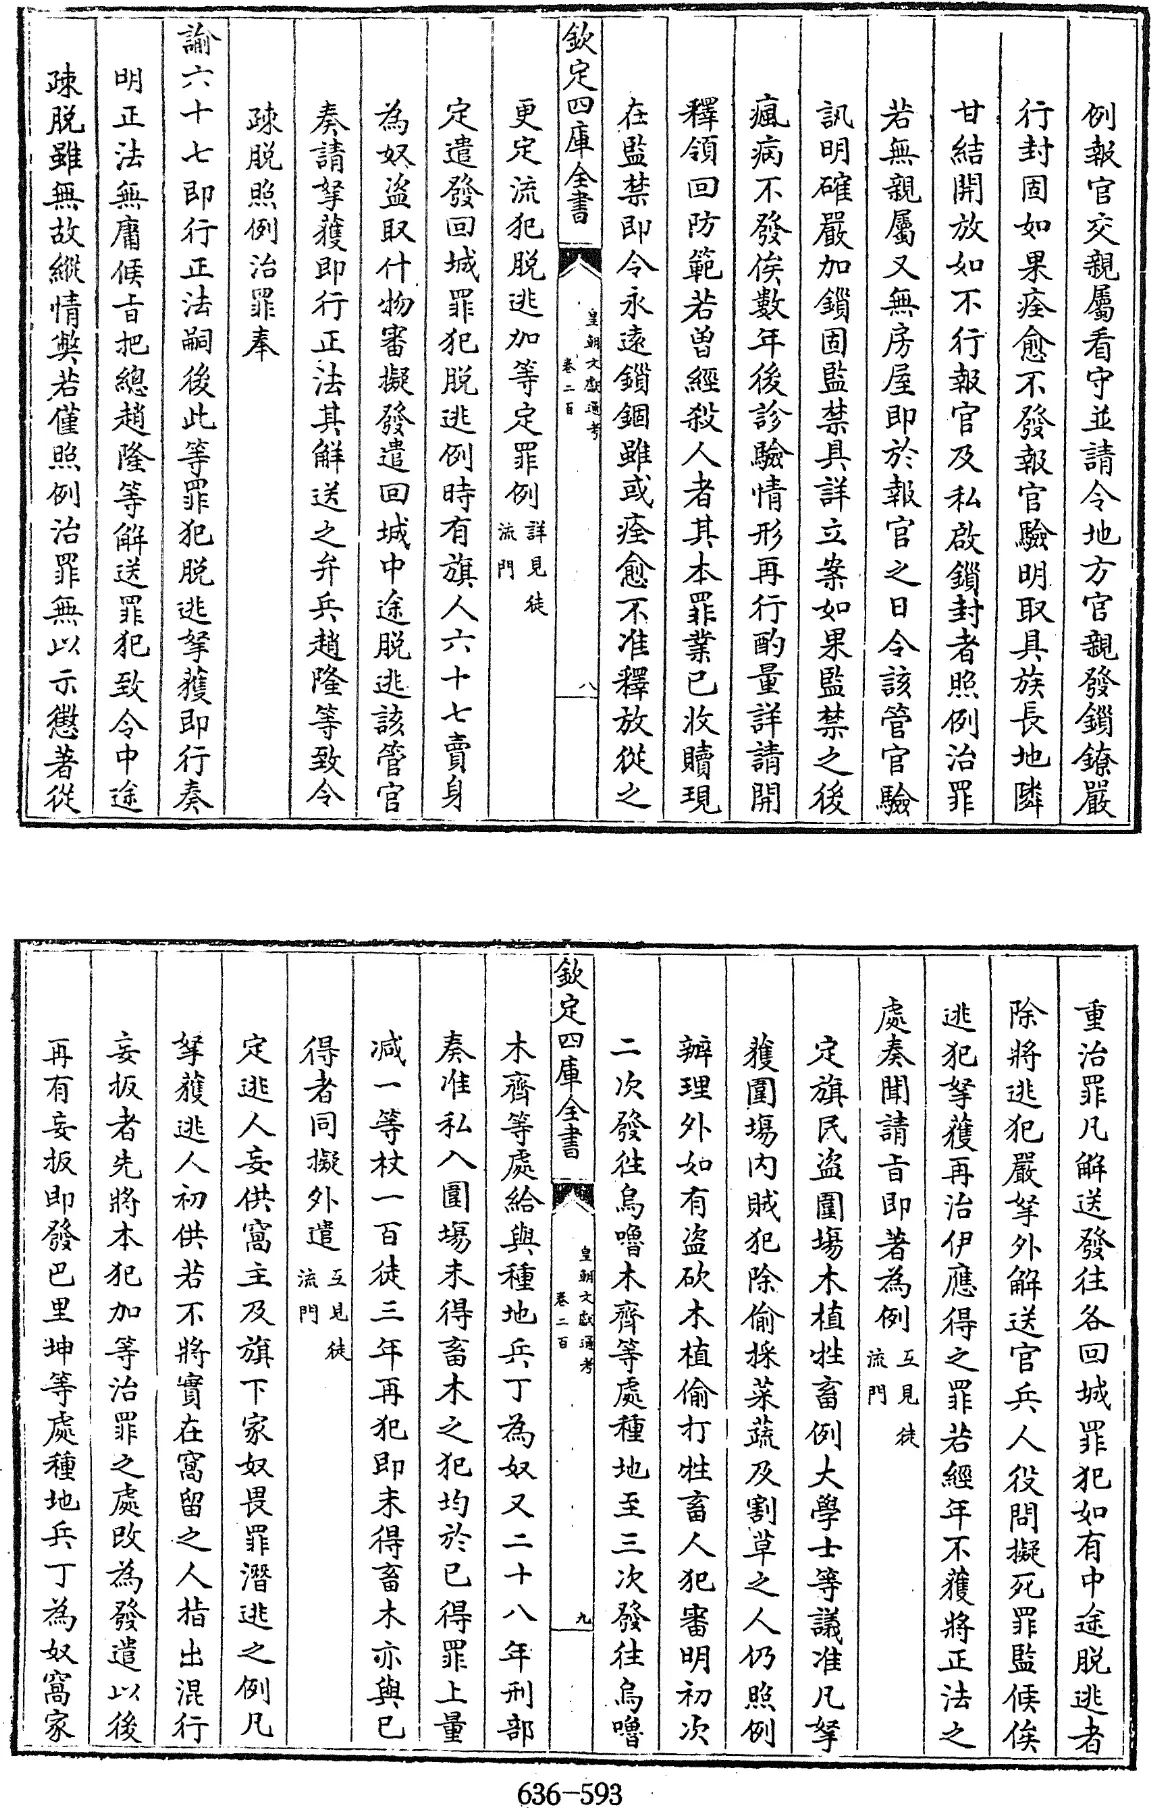 例報官交親屬看守並請令地方官親發鎖鐐嚴
行封固如果痊愈不發報官驗明取具族長地隣
甘結開放如不行報官及私啟鎖封者照例治罪
若無親屬又無房屋即於報官之日令該管官驗
訊明確嚴加鎖固監禁具詳立案如果監禁之後
瘋病不發俟數年後診驗情形再行酌量詳請開
釋領回防範若曾經殺人者其本罪業已收贖現
在監禁即令永遠鎖錮雖或痊愈不准釋放從之
欽定四庫全書
皇朝文獻通考
卷二百
八
更定流犯脱逃加等定罪例詳見徒
流門
定遣發回城罪犯脱逃例時有旗人六十七賣身
為奴盜取什物審擬發遣回城中途脱逃該管官
奏請拏獲即行正法其解送之弁兵趙隆等致令
疎脱照例治罪奉
諭六十七即行正法嗣後此等罪犯脱逃拏獲即行奏
明正法無庸候旨把總趙隆等解送罪犯致令中途
疎脱雖無故縱情獘若僅照例治罪無以示懲著從
重治罪凡解送發往各回城罪犯如有中途脱逃者
除將逃犯嚴拏外解送官兵人役問擬死罪監候俟
逃犯拏獲再治伊應得之罪若經年不獲將正法之
處奏聞請旨即著為例互見徒
流門
定旗民盜圍場木植牲畜例大學士等議准凡拏
獲圍場内賊犯除偷採菜蔬及割草之人仍照例
辦理外如有盜砍木植偷打牲畜人犯審明初次
二次發徃烏嚕木齊等處種地至三次發往烏嚕
欽定四庫全書
皇朝文獻通考
卷二百
九
木齊等處給與種地兵丁為奴又二十八年刑部
奏准私入圍場未得畜木之犯均於已得罪上量
减一等杖一百徒三年再犯即未得畜木亦與已
得者同擬外遣互見徒
流門
定逃人妄供窩主及旗下家奴畏罪潛逃之例凡
拏獲逃人初供若不將實在窩留之人指出混行
妄扳者先將本犯加等治罪之處改為發遣以後
再有妄扳即發巴里坤等處種地兵丁為奴窩家
636-593